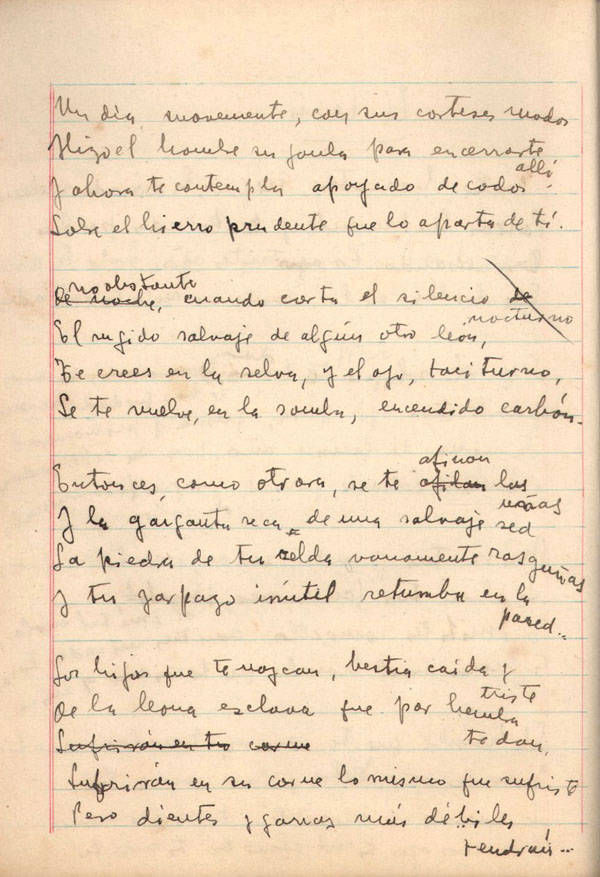 Un día, suavemente, con sus corteses modos
Hizo el hombre su jaula para encerrarte
allí.
Y ahora te contempla apoyado de codos
Sobre el hierro prudente que lo aparta de ti.
no obstante
De noche, cuando corta el silencio de
nocturno
El rugido salvaje de algún otro león,
Te crees en la selva, y el ojo, taciturno,
Se te vuelve, en la sombra, encendido carbón.
afinan
Entonces, como otrora, se te afilan las
uñas
Y la garganta seca de una salvaje sed
La piedra de tu celda vanamente rasguñas
Y tu zarpazo inútil retumba en la
pared...
Los hijos que te nazcan, bestia caída y
triste
De la leona esclava que por hembra
te dan,
Sufrirán en tu carne
Sufrirán en su carne lo mismo que sufriste
Pero dientes y garras más débiles
tendrán...